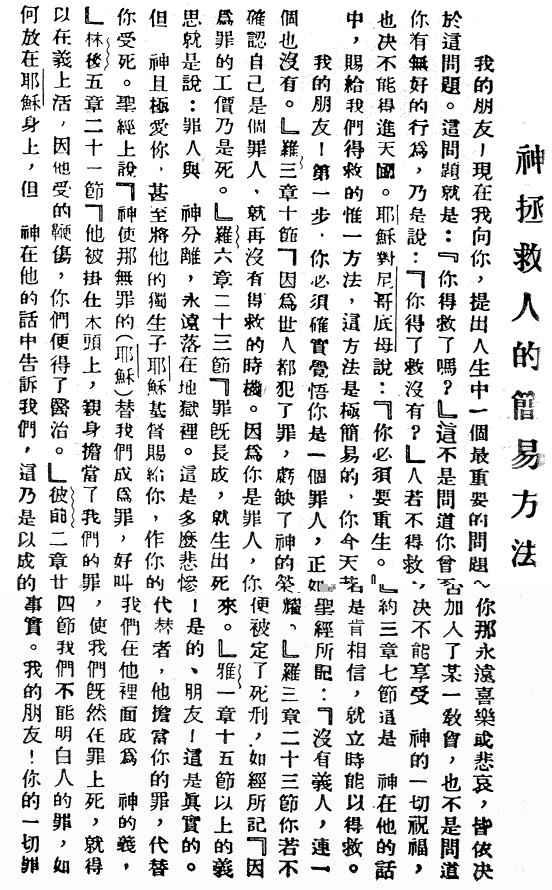 神拯救人的簡易方法
我的朋友!現在我向你,提出人生中一個最重要的問題~你那永遠喜樂或悲哀,皆依決
於這問題。這問題就是:『你得救了嗎?』這不是問道你曾否加入了某一敎會,也不是問道
你有無好的行爲,乃是說:『你得了救沒有?』人若不得救,決不能享受 神的一切祝福,
也決不能得進天國。耶穌對尼哥底母說:『你必須要重生。』約三章七節這是 神在他的話
中,賜給我們得救的惟一方法,這方法是極簡易的,你今天若是肯相信,就立時能以得救。
我的朋友!第一步,你必須確實覺悟你是一個罪人,正如聖經所記:『沒有義人,連一
個也沒有。』羅三章十節『因爲世人都犯了罪,虧缺了神的榮耀、』羅三章二十三節你若不
確認自己是個罪人、就再沒有得救的時機。因爲你是罪人,你便被定了死刑,如經所記『因
爲罪的工價乃是死。』羅六章二十三節『罪旣長成,就生出死來。』雅一章十五節以上的義
思就是說:罪人與 神分離,永遠落在地獄裡。這是多麼悲慘!是的、朋友!這是眞實的。
但 神且極愛你,甚至將他的獨生子耶穌基督賜給你,作你的代替者,他擔當你的罪,代替
你受死。聖經上說『神使那無罪的(耶穌)替我們成爲罪,好叫我們在他裡面成爲 神的義,
』林後五章二十一節『他被掛在木頭上,親身擔當了我們的罪,使我們旣然在罪上死,就得
以在義上活,因他受的鞭傷,你們便得了醫治。』彼前二章廿四節我們不能明白人的罪,如
何放在耶穌身上,但 神在他的話中告訴我們,這乃是以成的事實。我的朋友!你的一切罪